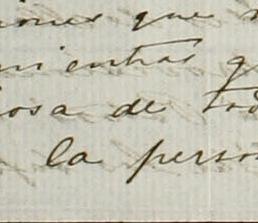 iones que
mientras q
iosa de tod
la perso